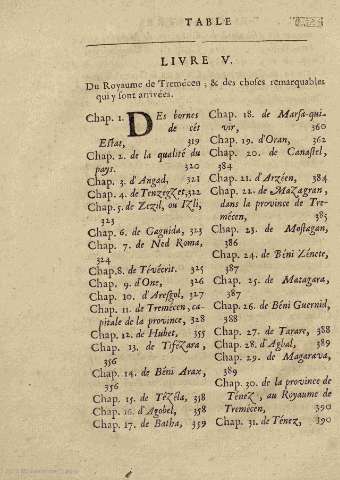 TABLE
LIVRE V.
Du Royaume de Tremécen ; & des choses remarquables
qui y sont arrivées.
Chap. 1. DEs bornes
de cét
Estat, 319
Chap. 2. de la qualité du
pays. 320
Chap. 3. d'Angad, 321
Chap. 4. de Tenzegzet, 322
Chap. 5. de Zezil, ou Izli,
323
Chap. 6. de Gaguida, 323
Chap. 7. de Ned Roma,
324
Chap. 8. de Tévécrit. 325
Chap. 9. d'One, 326
Chap. 10. d'Aresgol, 327
Chap. 11. de Tremécen, ca-
pitale de la province, 328
Chap. 12. de Hubet, 355
Chap. 13. de Tifézara,
356
Chap. 14. de Béni Arax,
356
Chap. 15. de Tézéla, 358
Chap. 16. d'Agobel, 358
Chap. 17. de Batha, 359
Chap. 18. de Marsa-qui-
vir, 360
Chap. 19. d'Oran, 362
Chap. 20. de Canastel,
384
Chap. 21. d'Arzéen, 384
Chap. 22. de Mazagran,
dans la province de Tre-
mécen, 385
Chap. 23. de Mostagan,
386
Chap. 24. de Béni Zénete,
387
Chap. 25. de Matagara,
387
Chap. 26. de Béni Guernid,
388
Chap. 27. de Tarare, 388
Chap. 28. d'Agbal, 389
Chap. 29. de Magarava,
389
Chap. 30. de la province de
Ténez, au Royaume de
Tremécen, 390
Chap. 31. de Ténez, 390